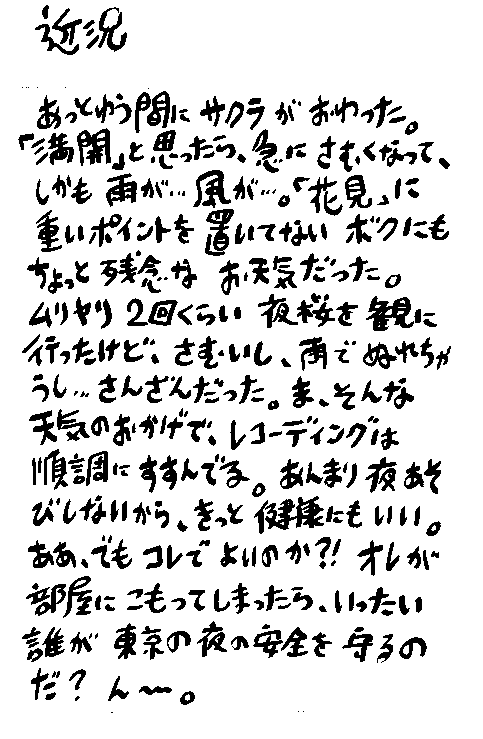 近況
あっとゆう間に サクラが おわった。
「満開」と思ったら、急に さむくなって、
しかも 雨が… 風が…。「花見」に
重いポイントを 置いてない ボクにも
ちょっと残念な お天気だった。
ムリヤリ 2回くらい 夜桜を 観に
行ったけど、さむいし、雨で ぬれちゃ
うし… さんざんだった。ま、そんな
天気のおかげで、レコーディングは
順調に すすんでる。あんまり 夜あそ
びしないから、きっと 健康にもいい。
ああ、でも コレで よいのか?! オレが
部屋に こもってしまったら、いったい
誰が 東京の夜の安全を 守るの
だ? ん〜。